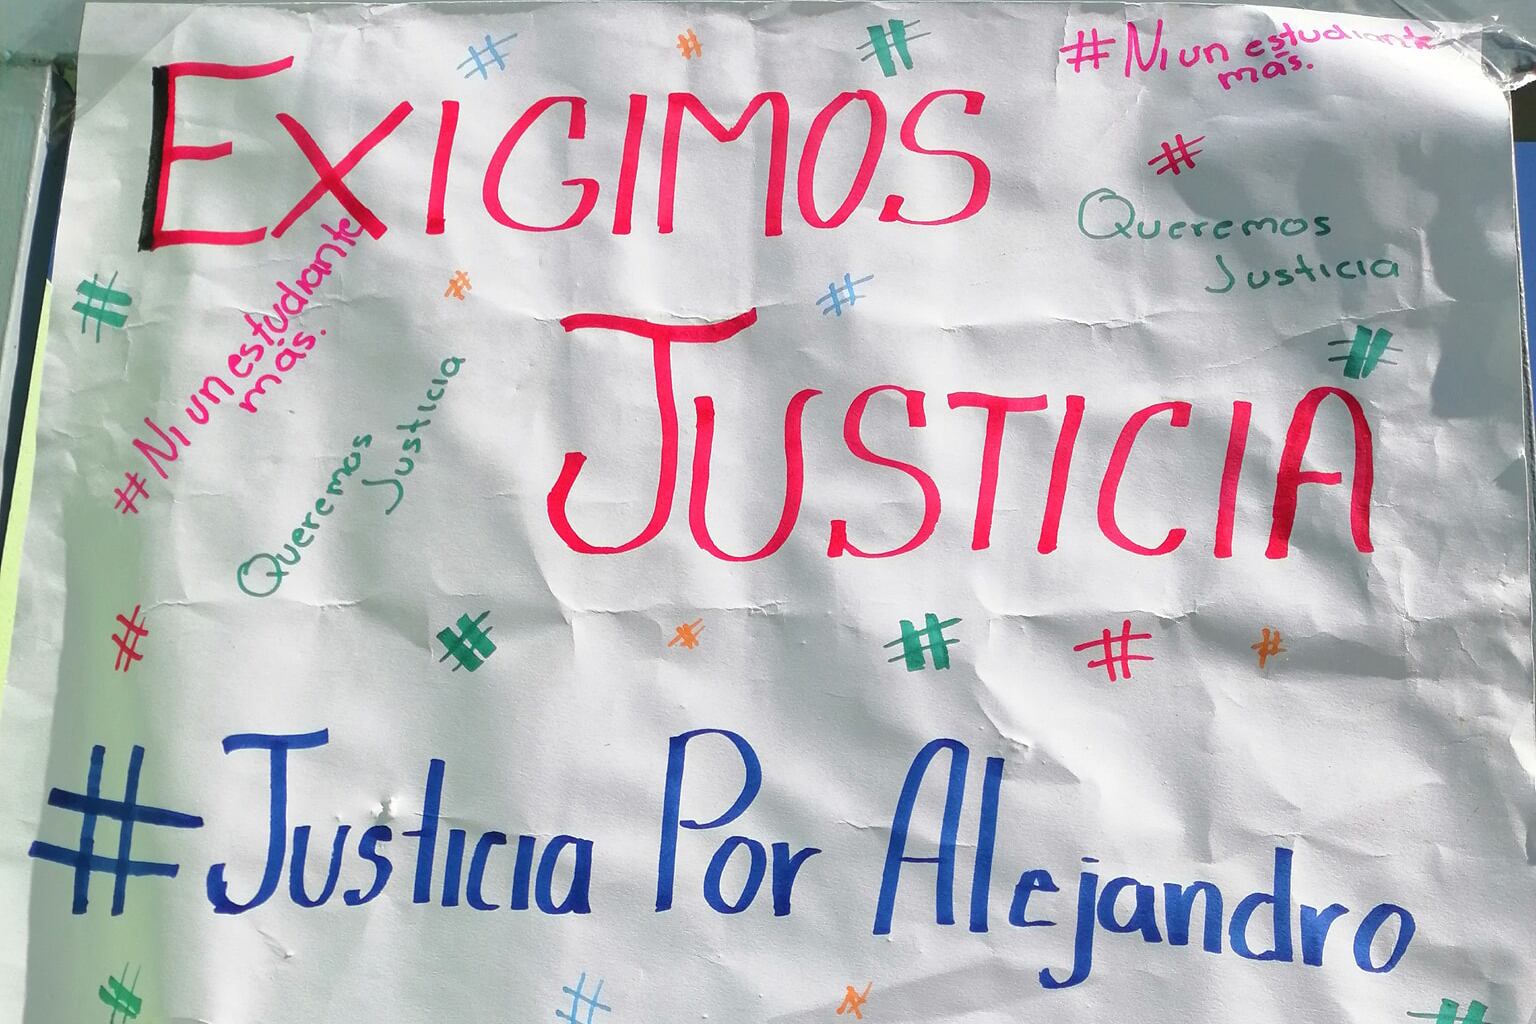 EXIGIMOS
#Ni un estudiante
más.
Queremos
Justicia
#Ni un estudiante
más.
Queremos
Justicia
JUSTICIA
#Justicia Por Alejandro